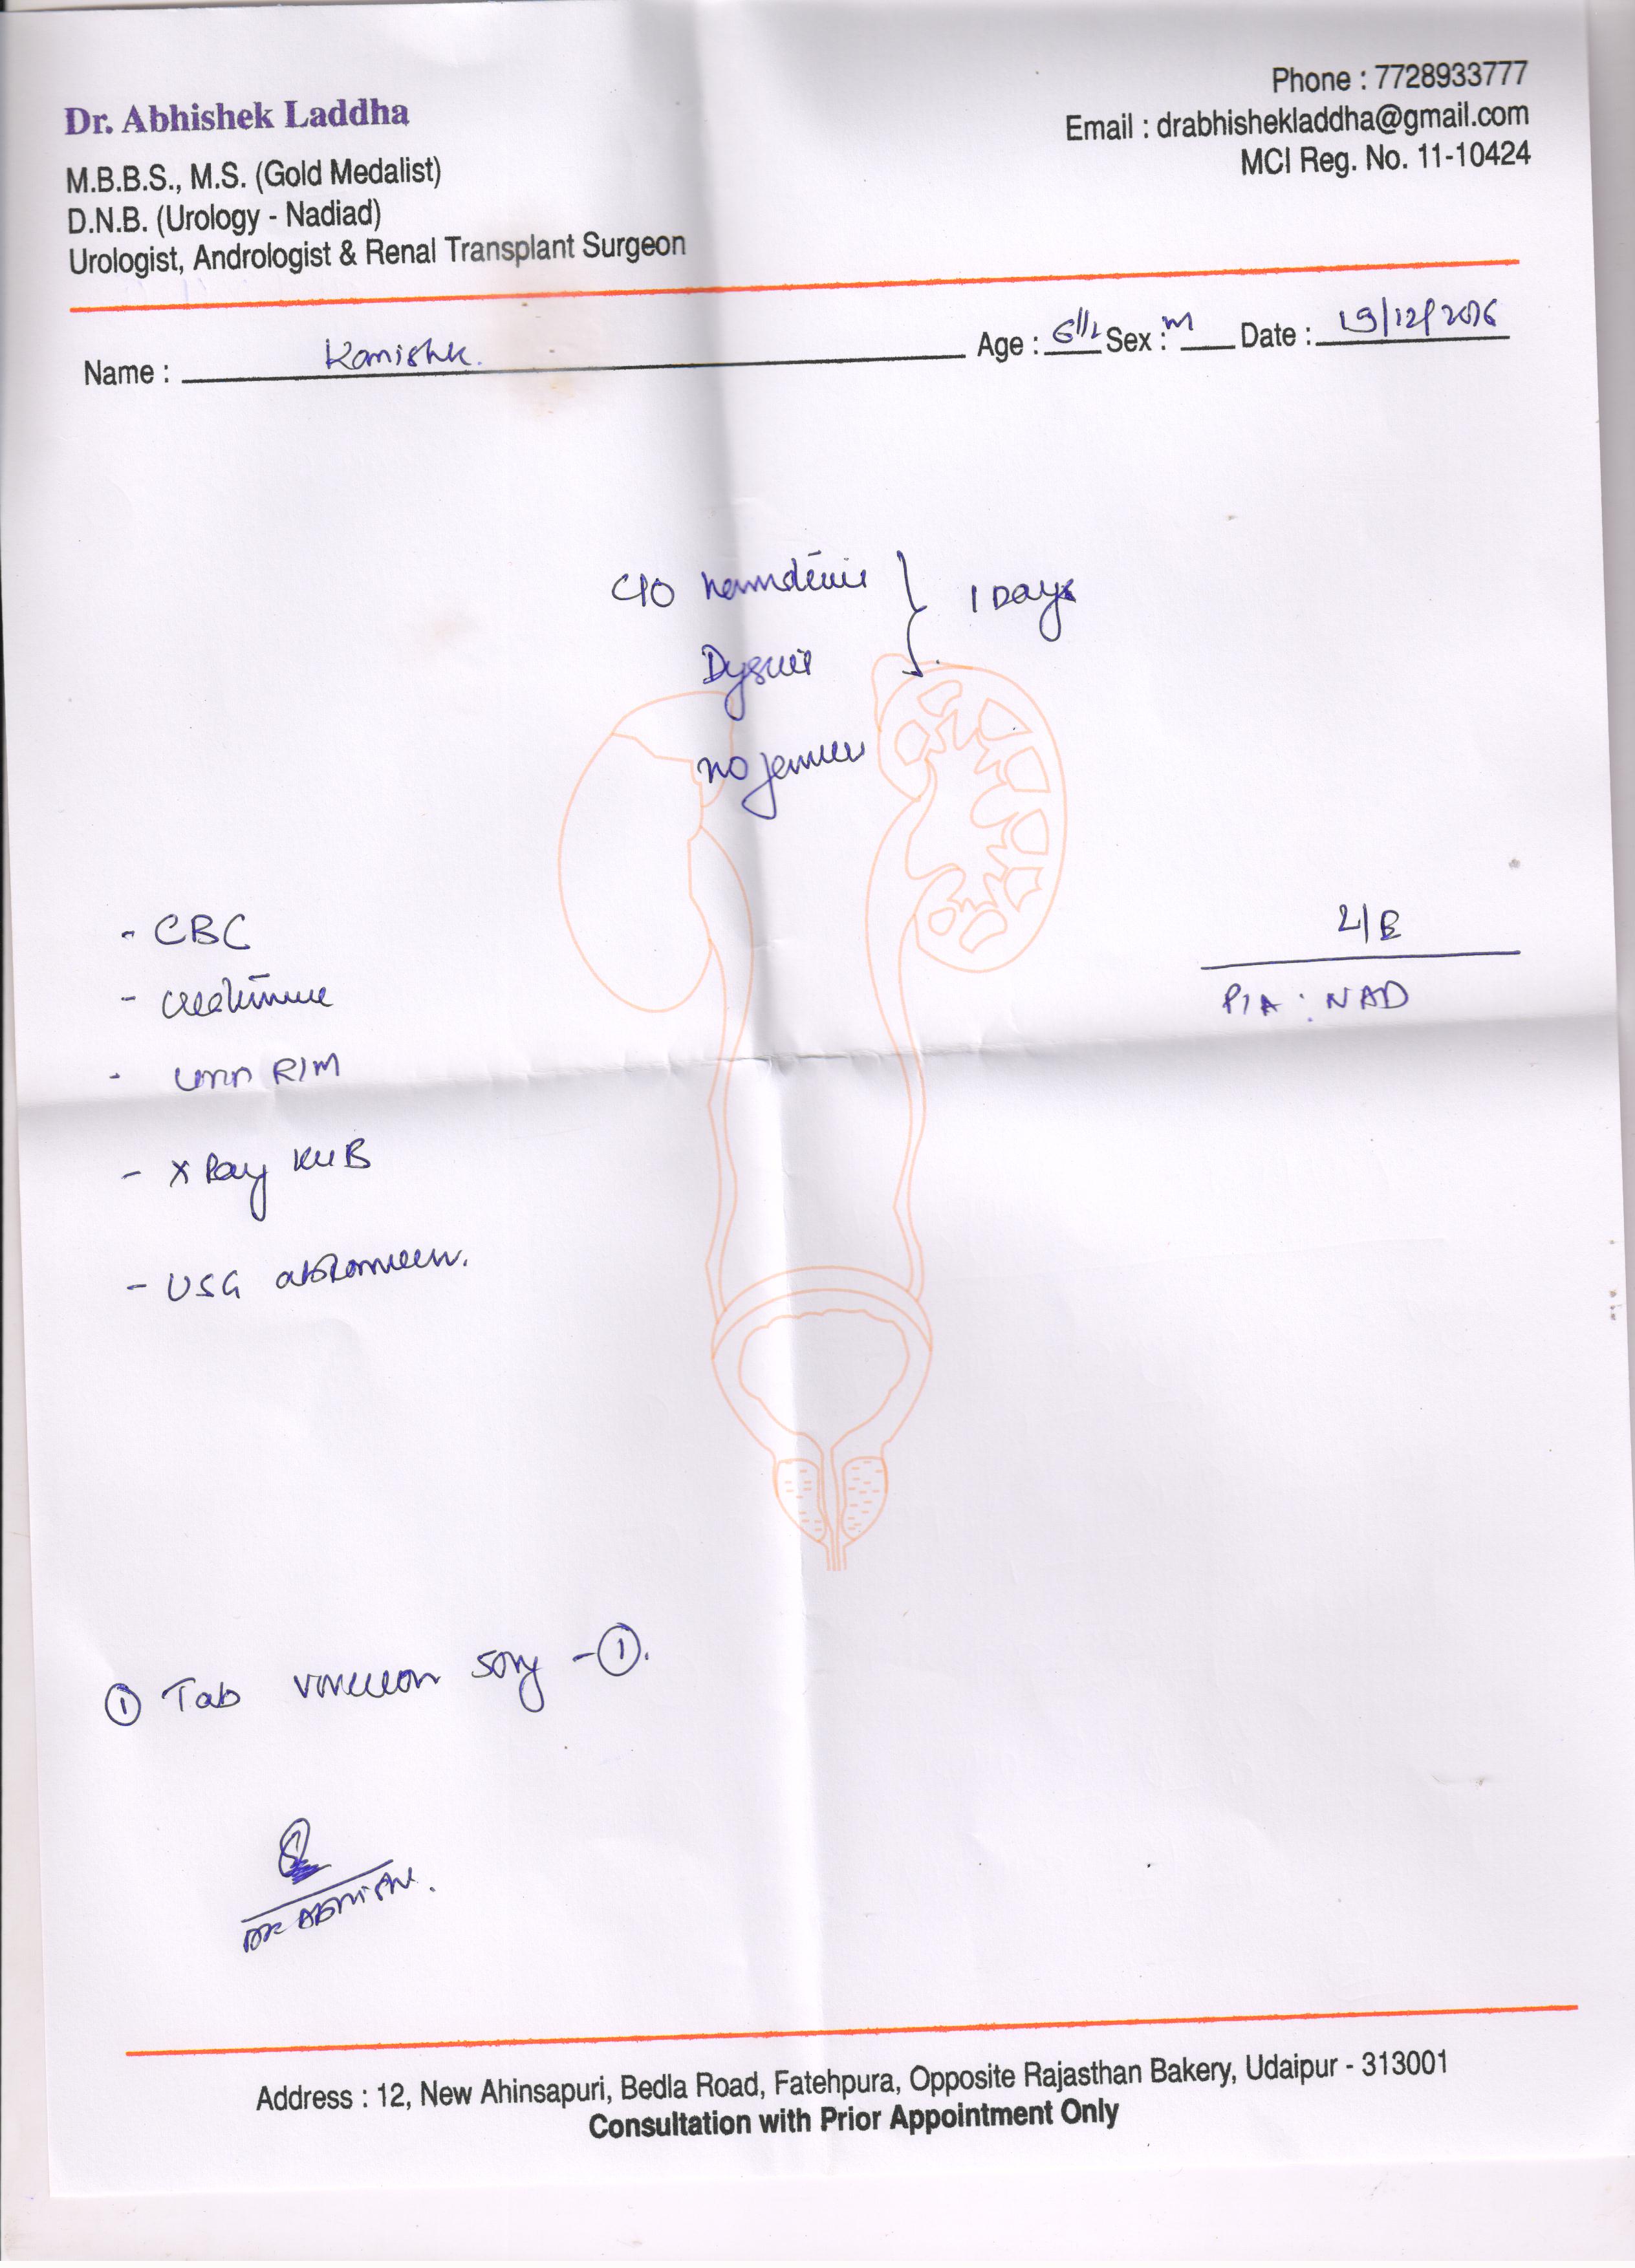 Dr. Abhishek Laddha
M.B.B.S., M.S. (Gold Medalist)
D.N.B. (Urology - Nadiad)
Urologist, Andrologist & Renal Transplant Surgeon
Phone : 7728933777
Email : drabhishekladdha@gmail.com
MCI Reg. No. 11-10424
Name : Kanishk. Age : Sex : m Date : 19/12/2016
C/O 1 Days
Dysuria
no
- CBC
- creatinine
- R/M
- X Ray KUB
- USG abdomen.
L/E
P/A : NAD
① Tab 50mg - ①.
Dr Abhishek.
Address : 12, New Ahinsapuri, Bedla Road, Fatehpura, Opposite Rajasthan Bakery, Udaipur - 313001
Consultation with Prior Appointment Only